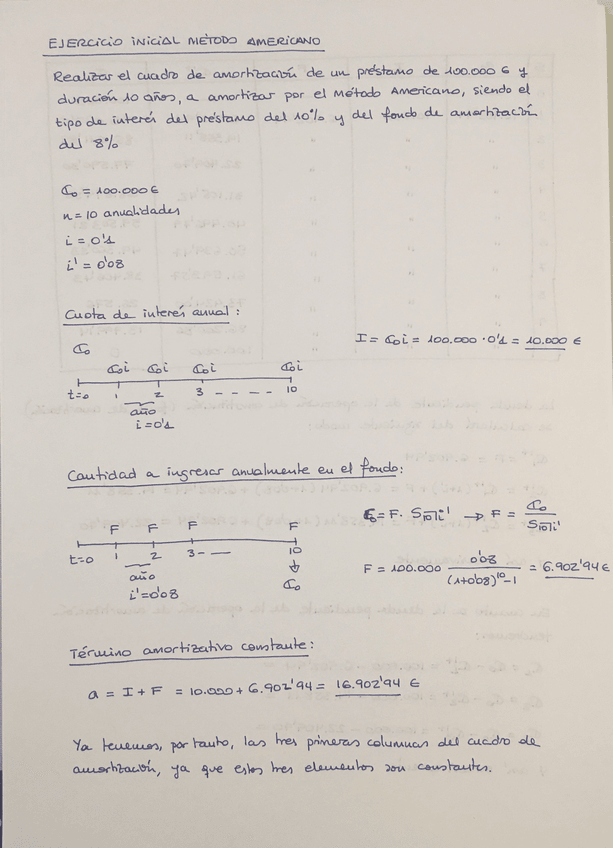 EJERCICIO INICIAL MÉTODO AMERICANO
Realizar el cuadro de amortización de un préstamo de 100.000 € y
duración 10 años, a amortizar por el Método Americano, siendo el
tipo de interés del préstamo del 10% y del fondo de amortización
del 8%
C₀ = 100.000 €
n = 10 anualidades
i = 0'1
i' = 0'08
Cuota de interés anual:
I = C₀i = 100.000 · 0'1 = 10.000 €
C₀
C₀i C₀i C₀i C₀i
t=0 1 2 3 - - - - 10
año
i=0'1
Cantidad a ingresar anualmente en el fondo:
C₀ = F · S₁₀┐i' → F = C₀ / S₁₀┐i'
F F F F
t=0 1 2 3 - — 10
año C₀
i'=0'08
F = 100.000 0'08 / (1+0'08)¹⁰-1 = 6.902'94 €
Término amortizativo constante:
a = I + F = 10.000 + 6.902'94 = 16.902'94 €
Ya tenemos, por tanto, las tres primeras columnas del cuadro de
amortización, ya que estos tres elementos son constantes.